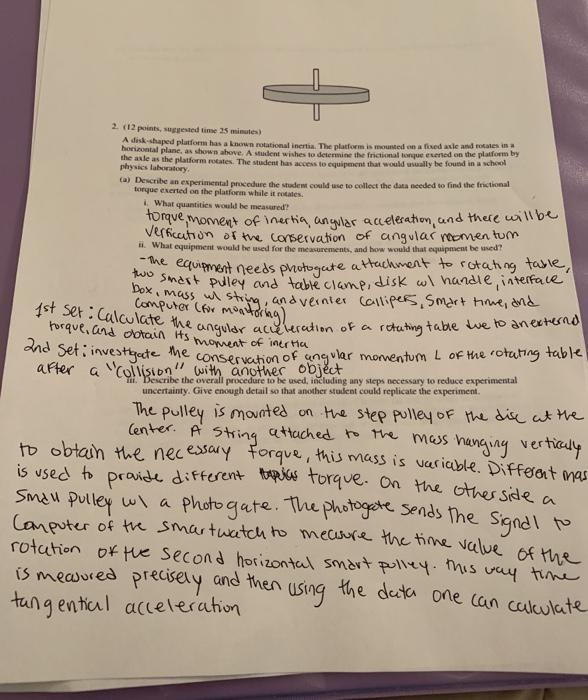 2. (12 points, suggested time 25 minutes)
A disk-shaped platform has a known rotational inertia. The platform is mounted on a fixed axle and rotates in a
horizontal plane, as shown above. A student wishes to determine the frictional torque exerted on the platform by
the axle as the platform rotates. The student has access to equipment that would usually be found in a school
physics laboratory.
(a) Describe an experimental procedure the student could use to collect the data needed to find the frictional
torque exerted on the platform while it rotates.
i. What quantities would be measured?
torque, moment of inertia, angular acceleration, and there will be
verfication of the conservation of angular momentum
ii. What equipment would be used for the measurements, and how would that equipment be used?
-The equipment needs photogate attachment to rotating table,
two smart pulley and table clamp, disk w/ handle, interface
box, mass w/ string, and vernier callipers, smart time, and
Computer (for monitoring)
1st Set: Calculate the angular acceleration of a rotating table due to an external
torque, and obtain its moment of inertia
2nd Set: investigate the conservation of angular momentum L of the rotating table
after a "Collision" with another object
iii. Describe the overall procedure to be used, including any steps necessary to reduce experimental
uncertainty. Give enough detail so that another student could replicate the experiment.
The pulley is mounted on the step pulley of the disc at the
Center. A string attached to the mass hanging vertically
to obtain the necessary torque, this mass is variable. Different mas
is used to provide different torque. On the other side a
Small pulley w/ a photogate. The photogate sends the signal to
Computer of the smartwatch to measure the time value of the
rotation of the second horizontal smart pulley. This way time
is measured precisely and then using the data one can calculate
tangential acceleration